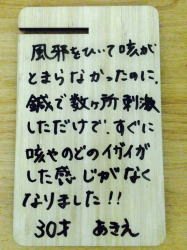 風邪をひいて咳が
とまらなかったのに、
鍼で数ヶ所刺激
しただけで、すぐに
咳やのどのイガイガ
した感じがなく
なりました!!
30才 あきえ